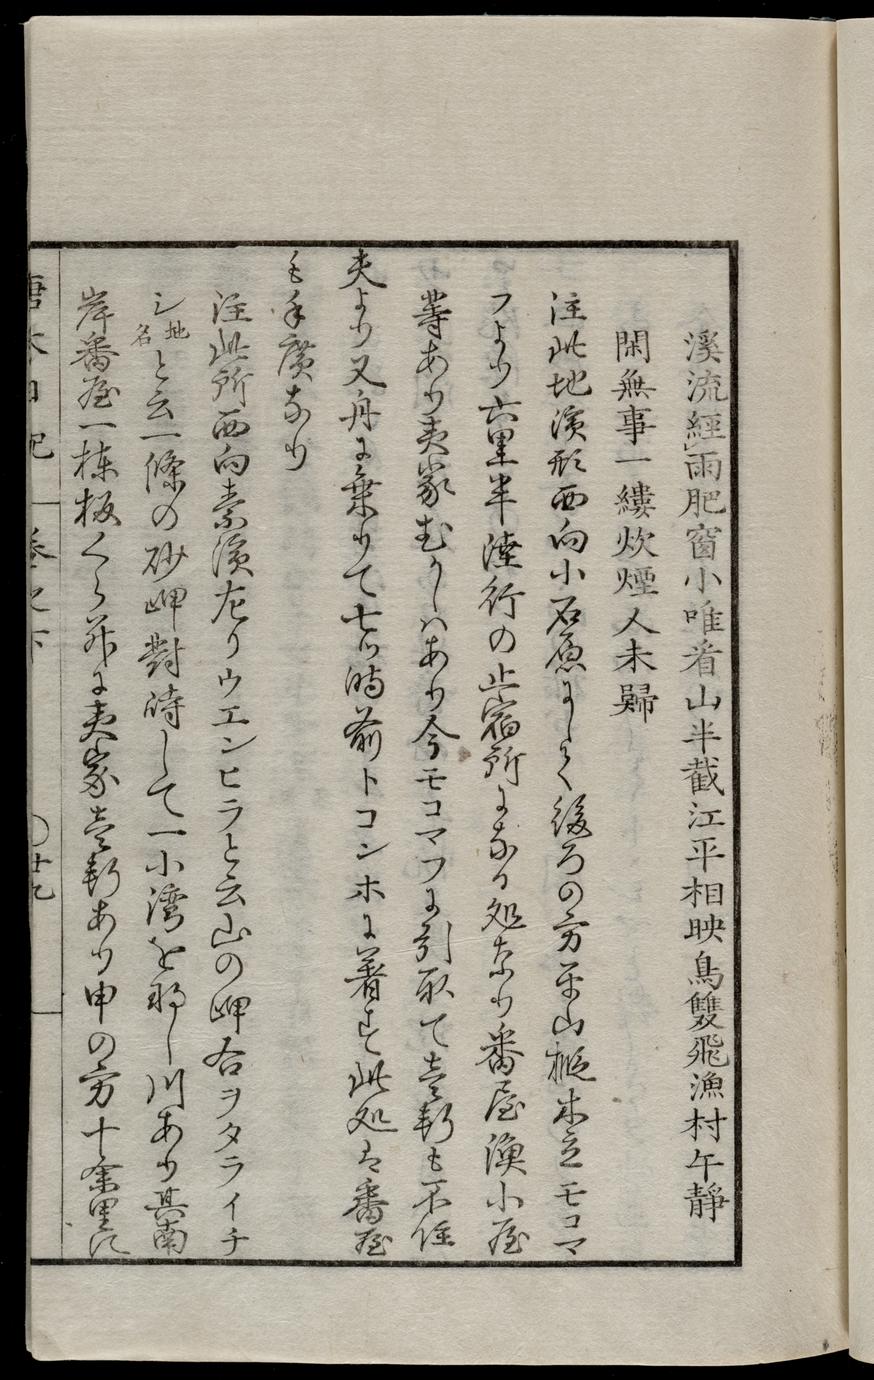 溪流經雨肥窗小唯看山半截江平相映鳥雙飛漁村午靜
閑無事一縷炊煙人未歸
注此地濱形西向小石原にして後ろの方平山樅木立モコマ
フより六里半陸行の止宿所になる処なり番屋漁小屋
等あり夷家むかしハあり今モコマフに引取て壱軒も不住
夫より又舟に乗りて七ツ時前トコンホに著す此処は番屋
も手廣なり
注此所西向素濱左りウエンヒラと云山の岬右ヲタライチ
シ地名と云一條の砂岬對峙して一小湾を形し川あり其南
岸番屋一棟板くら并に夷家壱軒あり申の方十余里に
唐太日記 卷之下 〇廿九